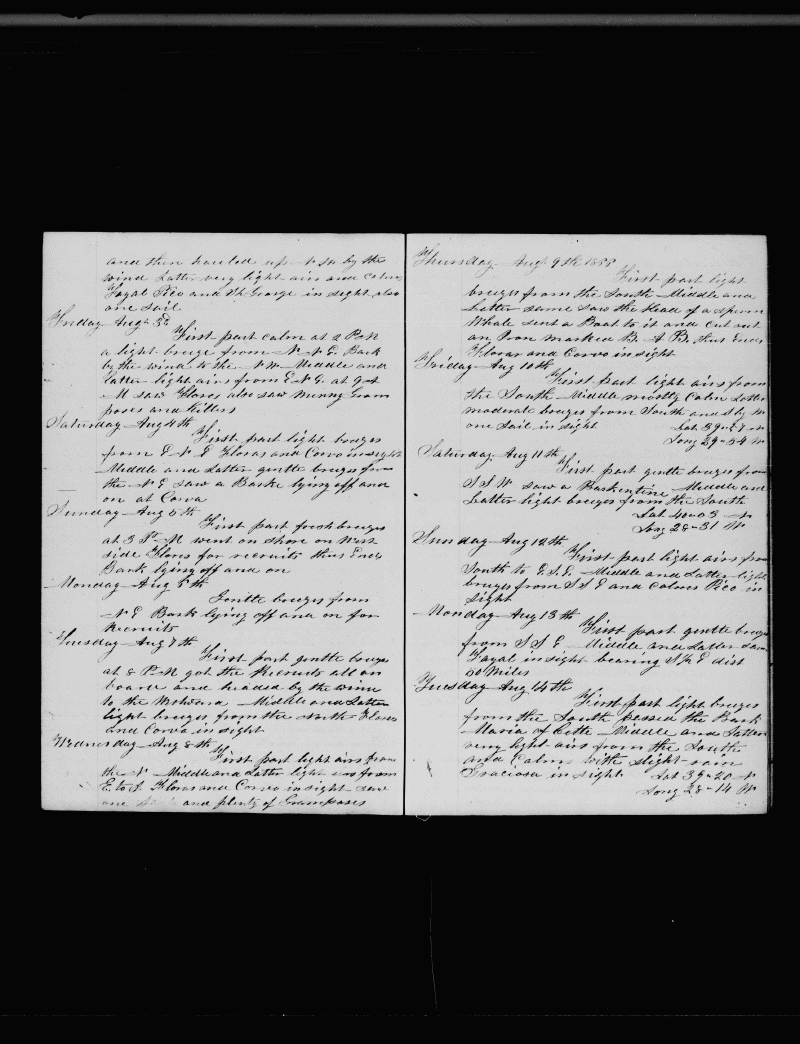 and then hauled up N W by the
wind Latter very light airs and Calms
Fayal Pico and St George in sight also
one sail
Friday Aug 3d
First part calm at 2 P M
a light breeze from N N E. Bark
by the wind to the N W Middle and
Latter light airs from E N E. at 9 A
M saw Flores also saw Menny Gram
poses and Killers
Saturday Aug 4th
First part light breezes
from E N E Floras and Corvo in sight
Middle and Latter gentle breezes from
the N E saw a Bark lying off and
on at Corvo
Sunday Aug 5th
First part fresh breezes
at 3 P M went on shore on West
side Flores for recruits thus Ends
Bark lying off and on
Monday Aug 6th
Gentle breezes from
N E Bark lying off and on for
Recruits
Tuesday Aug 7th
First part gentle breezes
at 8 P M got the Recruits all on
board and headed by the wind
to the Westward Middle and Latter
light breezes from the North Flores
and Corvo in sight
Wednesday Aug 8th
First part light airs from
the N Middle and Latter light airs from
E to S Floras and Corvo in sight saw
one and plenty of Gramposes
Thursday Aug 9th 1888
First part light
breezes from the South Middle and
Latter same saw the Head of a sperm
Whale sent a Boat to it and Cut out
an Iron marked B. A B. thus Ends
Floras and Corvo in sight
Friday Aug 10th
First part light airs from
the South Middle mostly Calm Latter
moderate breezes from South and S by W
one Sail in sight Lat 39-27 N
Long 29-54 W
Saturday Aug 11th
First part gentle breezes from
S S W saw a Barkentine Middle and
Latter light breezes from the South
Lat 40-03 N
Long 28-31 W
Sunday Aug 12th
First part light airs from
South to E.S.E. Middle and Latter light
breezes from S S E and Calms Pico in
sight
Monday Aug 13th
First part gentle breezes
from S S E Middle and Latter same
Fayal in sight bearing S E dist
50 Miles
Tuesday Aug 14th
First part light breezes
from the South passed the Bark
Maria of Cette Middle and Latter
very light airs from the South
and Calms with slight rain
Graciosa in sight Lat 39-20 N
Long 28-14 W